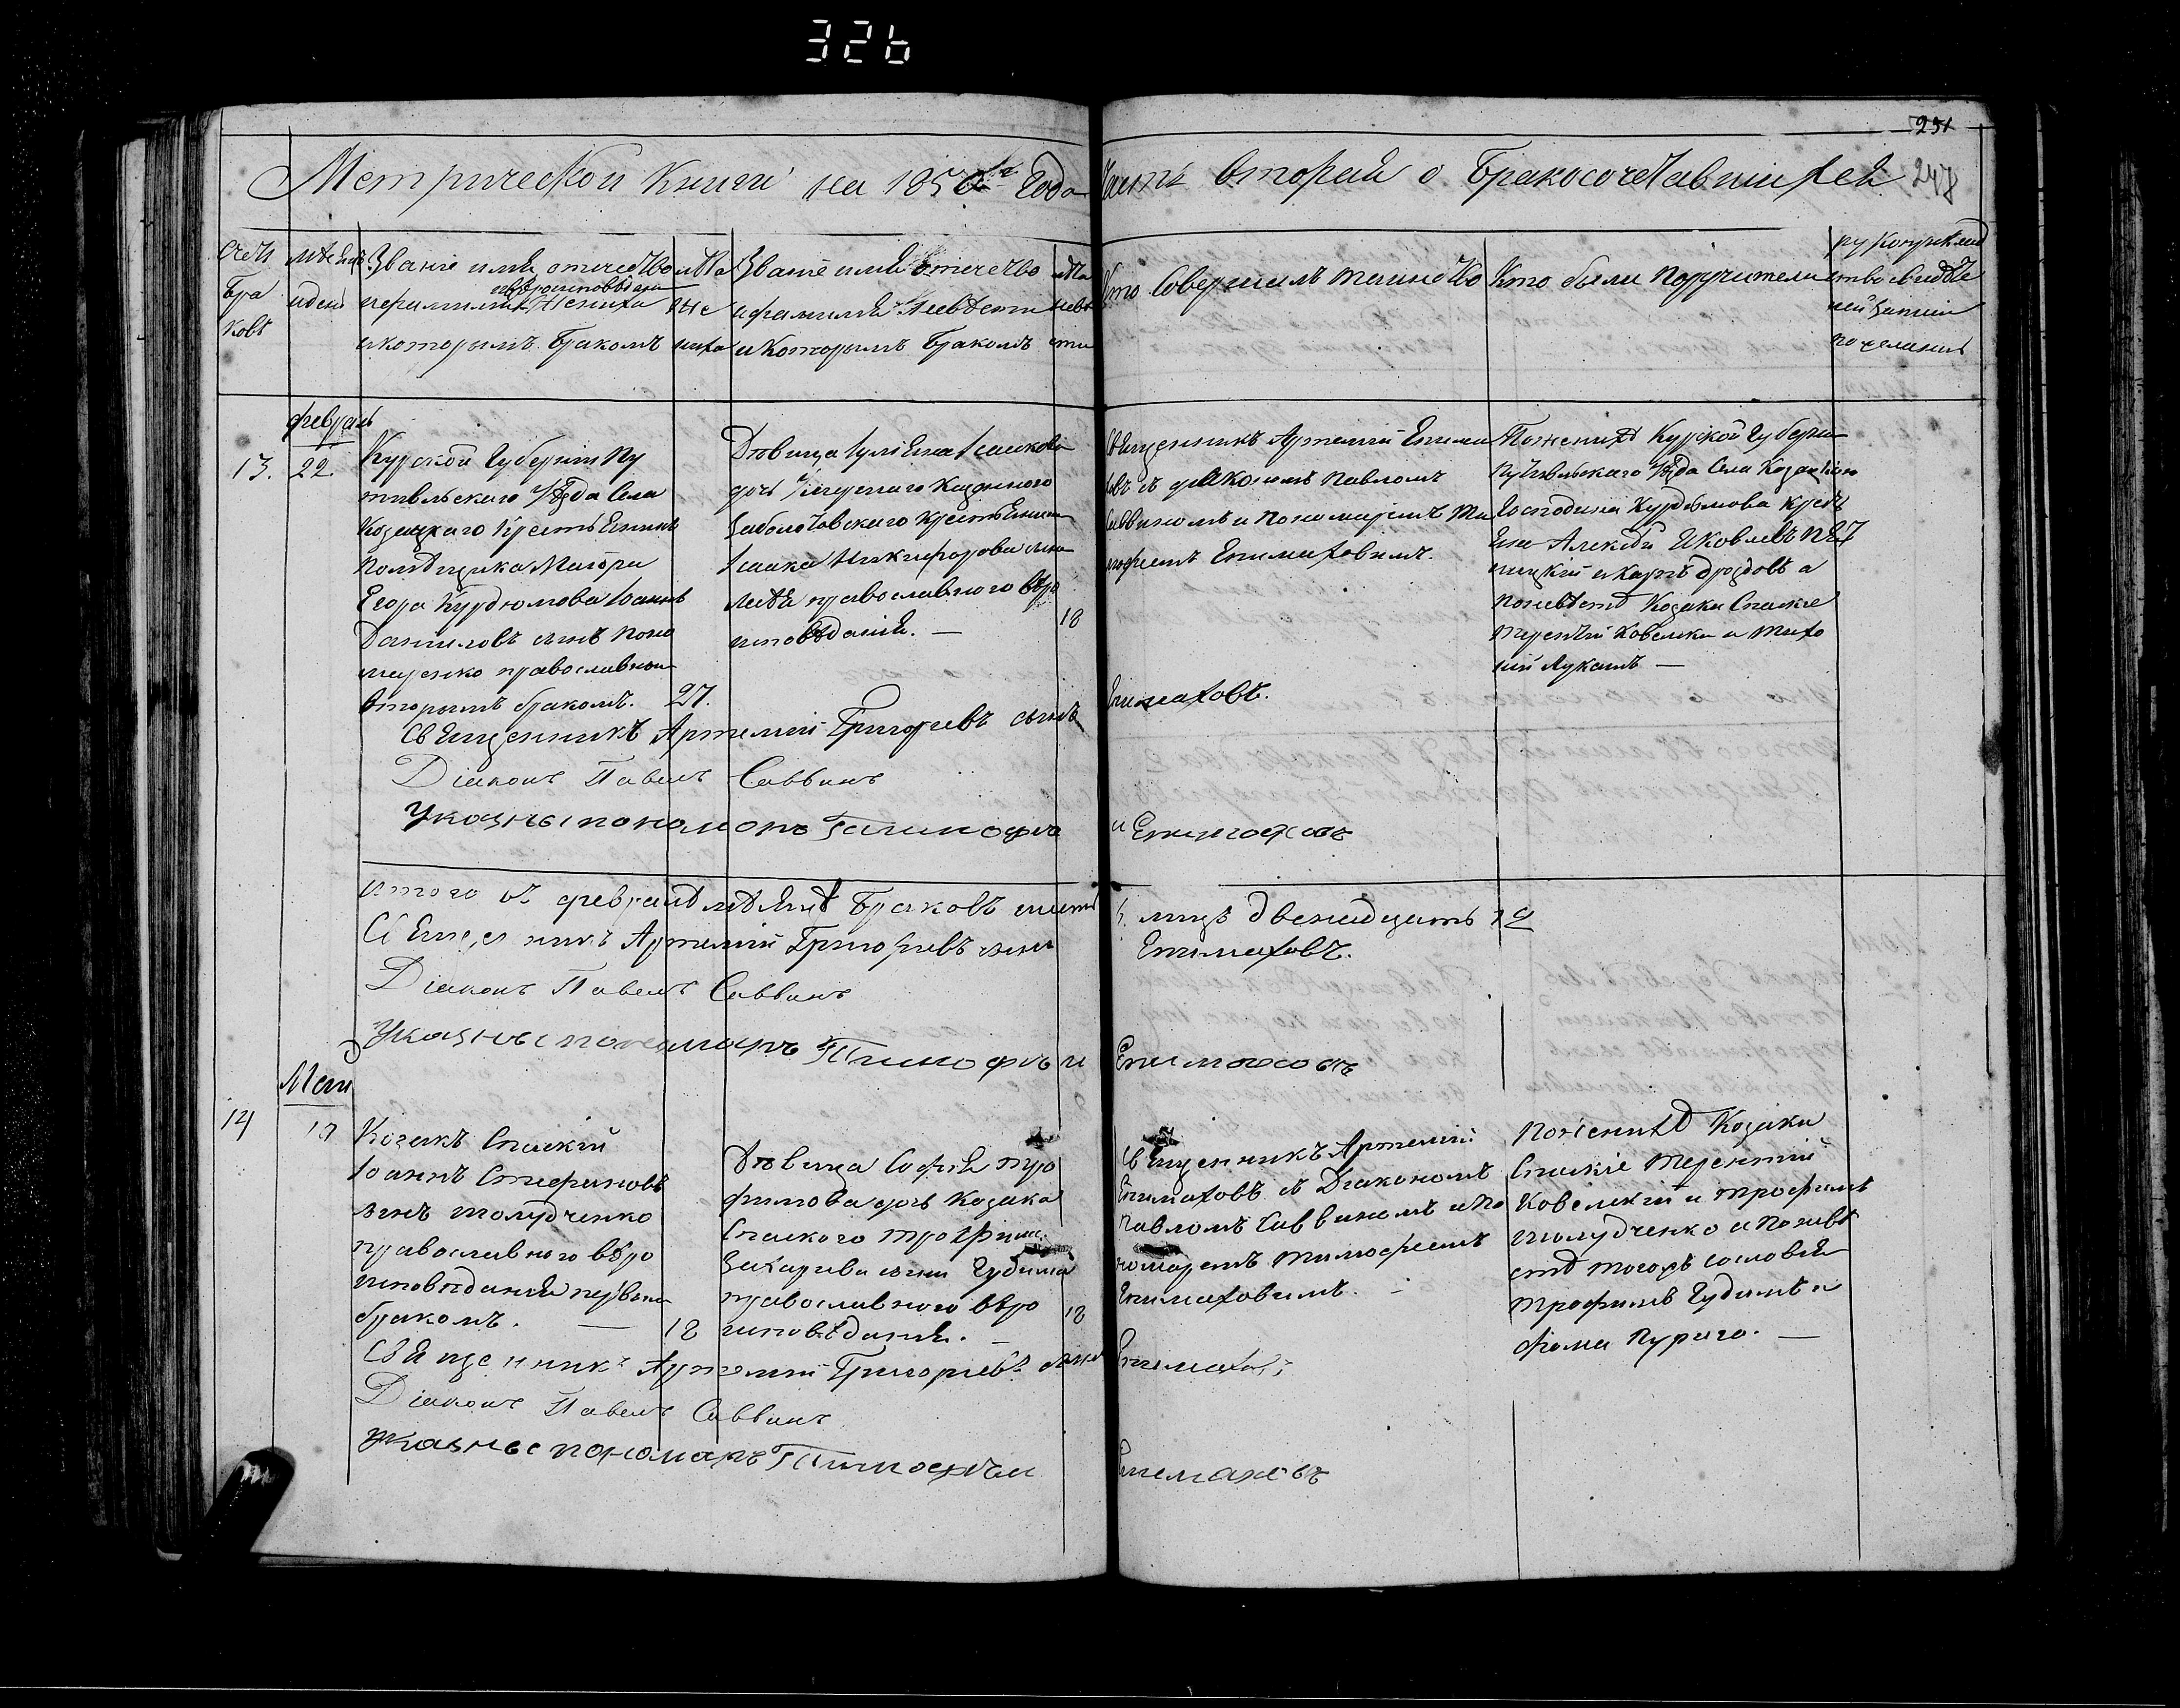 326
231
Метрической книги на 185 года
Часть вторая о бракосочетавшихся 248
Счетъ браковъ
Мѣсяцъ и день
Званіе имя, отчество
вѣроисповѣданіе
и фамилія жениха
и которымъ бракомъ
лѣта жениха
Званіе имя отчество
и фамилія невѣсты
и которымъ бракомъ
лѣта невѣсты
Кто совершилъ таинство
Кто были поручители
рукоприклад
ство свидѣте
лей записи
по желанію
февраль
13. 22
Курской губерніи Пу
тивльскаго уѣзда села
Козацкаго крестьянинъ
помѣщика Маіора
Егора Курдюмова Іоаннъ
Даниловъ сынъ Поно
маренко православнаго
вторымъ бракомъ. 27.
Дѣвица Іуліяна Ісаакова
дочь умершаго казеннаго
крестьянина
Ісаака Никифорова
православнаго вѣро
исповѣданія. — 18
Священникъ Артемій Епима
ховъ съ діакономъ Павломъ
Саввинымъ и пономаремъ Ти
мофеемъ Епимаховымъ.
По женихѣ Курской губерніи
Путивльскаго уѣзда села Козацкаго
господина Курдюмова крестья
яне Алексѣй Яковлевъ
и Карпъ Дроздовъ а
по невѣстѣ козаки Спаскіе
Терентій Ковелски и Тихо
ній Лукашъ —
Священникъ Артемій Григорьевъ сынъ Епимаховъ.
Діаконъ Павелъ Саввинъ
Указные пономарь Тимофѣи Епимаховъ
Итого въ февралѣ мѣсяцѣ браковъ шесть 6. лицъ двенадцать 12
Священникъ Артемій Григорьевъ сынъ Епимаховъ.
Діаконъ Павелъ Саввинъ
Указные пономарь Тимофѣи Епимаховъ
Маи
14
Козакъ Спаскій
Іоаннъ Стефановъ
сынъ Толудченко
православнаго вѣро
исповѣданія первымъ
бракомъ. — 18
Дѣвица Софія Тро
фимова дочь козака
Спаского Трофима
Захаріева сына Гудима
православнаго вѣро
исповѣданія. — 18
Священникъ Артемій
Епимаховъ съ Діакономъ
Павломъ Саввинымъ и по
номаремъ Тимофеемъ
Епимаховымъ. —
По женихѣ козаки
Спаскіе Терентій
Ковелскій и Трофимъ
Толудченко а по невѣ
стѣ тогожъ сословія
Трофимъ Гудимъ и
Фома Пурыго. —
Священникъ Артемій Григорьевъ сынъ Епимаховъ
Діаконъ Павелъ Саввинъ
Указные пономарь Тимофѣи Епимаховъ